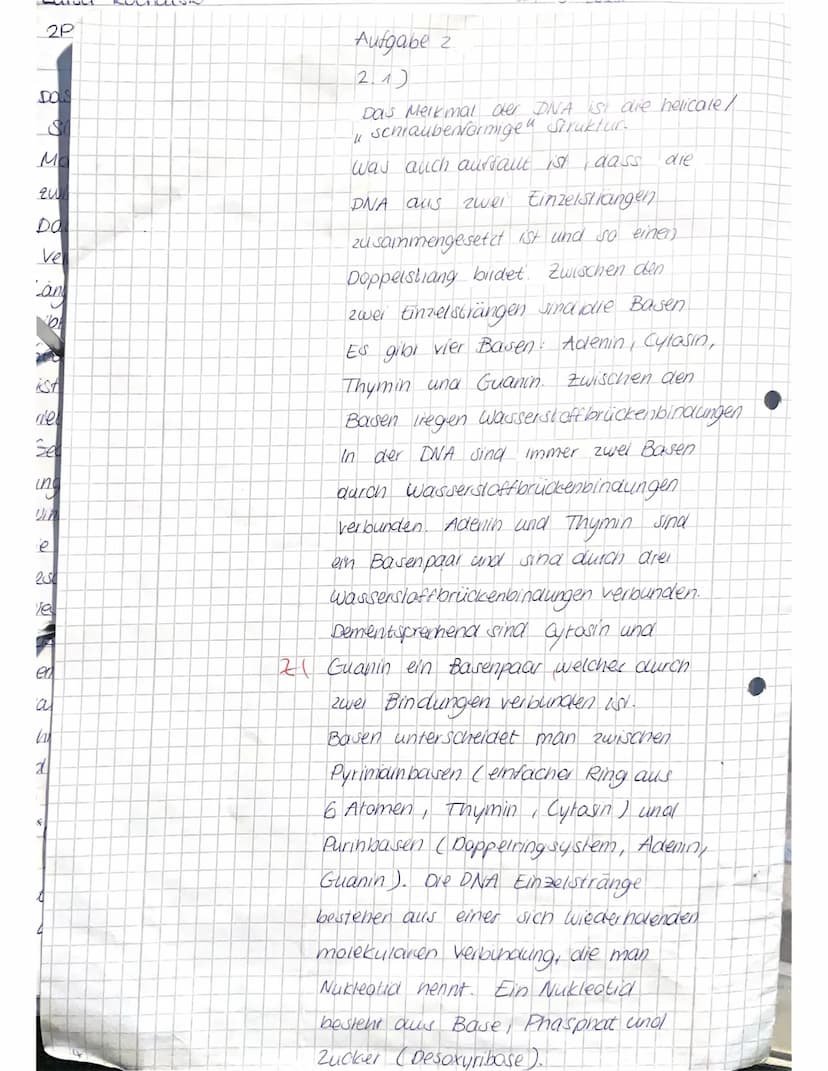 2P
Aufgabe 2
2.1)
Das Merkmal der DNA ist die helicale/
„schraubenförmige" Struktur.
Was auch auffällt ist, dass die
DNA aus zwei Einzelsträngen
zusammengesetzt ist und so einen
Doppelstrang bildet. Zwischen den
zwei Einzelsträngen sind die Basen.
Es gibt vier Basen: Adenin, Cytosin,
Thymin und Guanin. Zwischen den
Basen liegen Wasserstoffbrückenbindungen
In der DNA sind immer zwei Basen
durch Wasserstoffbrückenbindungen
verbunden. Adenin und Thymin sind
ein Basenpaar und sind durch drei
Wasserstoffbrückenbindungen verbunden.
Dementsprechend sind Cytosin und
Z( Guanin ein Basenpaar, welches durch
zwei Bindungen verbunden ist.
Basen unterscheidet man zwischen
Pyrinidinbasen (einfacher Ring aus
6 Atomen, Thymin, Cytosin) und
Purinbasen (Doppelringsystem, Adenin,
Guanin). Die DNA Einzelstränge
bestehen aus einer sich wiederholenden
molekularen Verbindung, die man
Nukleotid nennt. Ein Nukleotid
besteht aus Base, Phosphat und
Zucker (Desoxyribose).